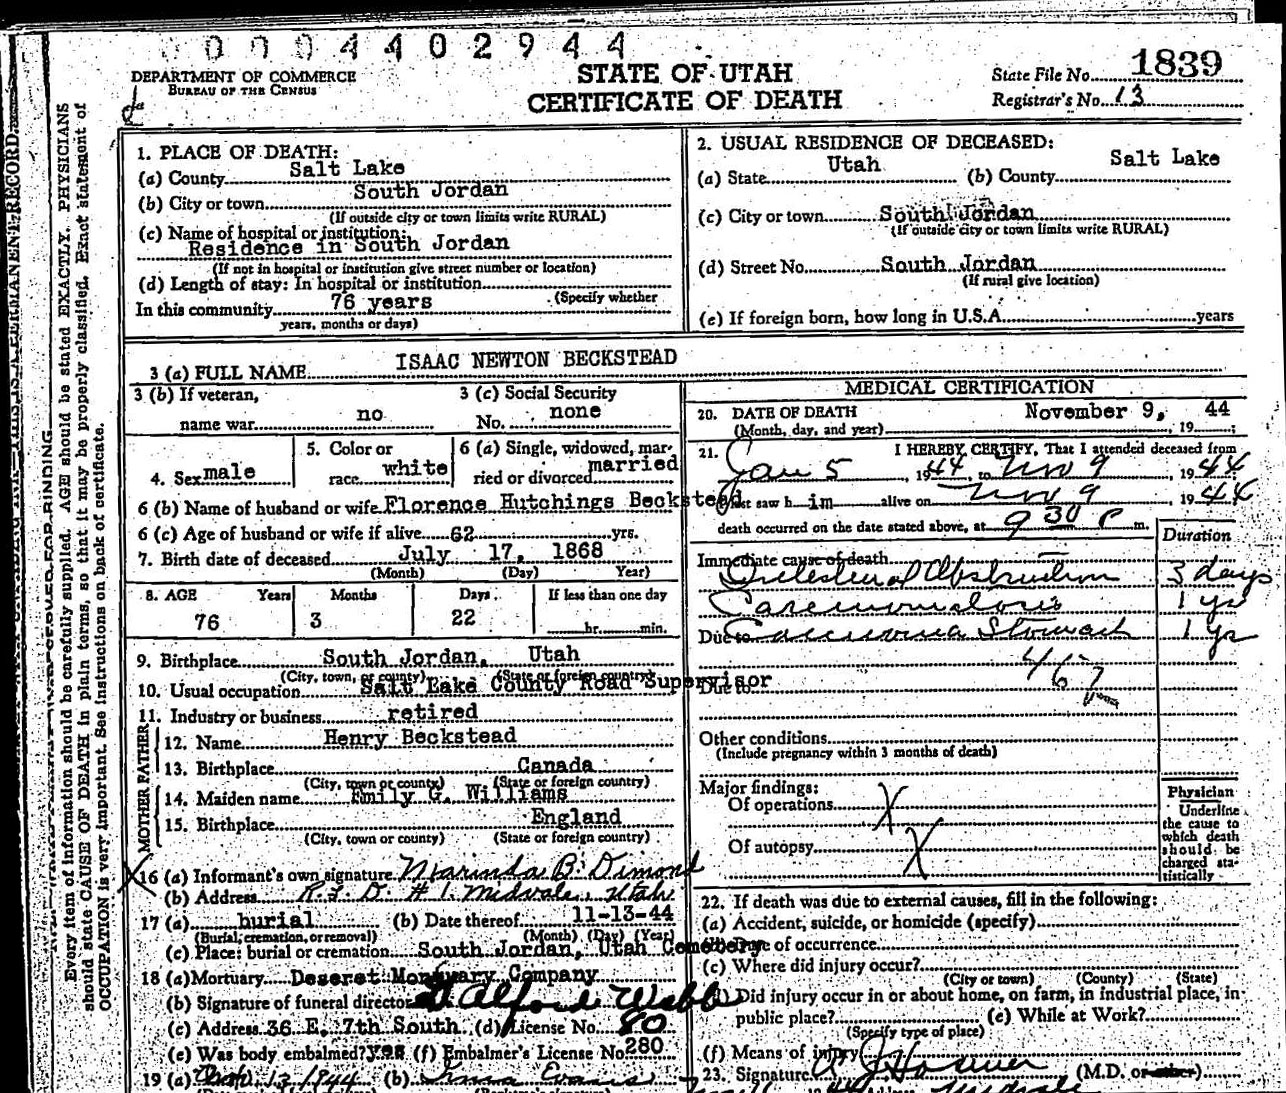 0004402944
DEPARTMENT OF COMMERCE
BUREAU OF THE CENSUS
STATE OF UTAH
CERTIFICATE OF DEATH
State File No. 1839
Registrar's No. 13
1. PLACE OF DEATH:
(a) County Salt Lake
(b) City or town South Jordan
(If outside city or town limits write RURAL)
(c) Name of hospital or institution:
Residence in South Jordan
(If not in hospital or institution give street number or location)
(d) Length of stay: In hospital or institution
(Specify whether
In this community 76 years
years, months or days)
2. USUAL RESIDENCE OF DECEASED:
(a) State Utah (b) County Salt Lake
(c) City or town South Jordan
(If outside city or town limits write RURAL)
(d) Street No. South Jordan
(If rural give location)
(e) If foreign born, how long in U.S.A. years
3 (a) FULL NAME ISAAC NEWTON BECKSTEAD
3 (b) If veteran, name war no
3 (c) Social Security No. none
4. Sex male
5. Color or race white
6 (a) Single, widowed, married or divorced married
6 (b) Name of husband or wife Florence Hutchings Beckstead
6 (c) Age of husband or wife if alive 62 yrs.
7. Birth date of deceased July 17, 1868
(Month) (Day) Year)
8. AGE Years Months Days If less than one day
76 3 22 hr. min.
9. Birthplace South Jordan, Utah
(City, town, or county) (State or foreign country)
10. Usual occupation Salt Lake County Road Supervisor
11. Industry or business retired
FATHER
12. Name Henry Beckstead
13. Birthplace Canada
(City, town or county) (State or foreign country)
MOTHER
14. Maiden name Emily G. Williams
15. Birthplace England
(City, town or county) (State or foreign country)
X 16 (a) Informant's own signature Marinda B. Dimond
(b) Address R.F.D. #1. Midvale, Utah
17 (a) burial (b) Date thereof 11-13-44
(Burial, cremation, or removal) (Month) (Day) (Year)
(c) Place: burial or cremation South Jordan, Utah Cemetery
18 (a) Mortuary Deseret Mortuary Company
(b) Signature of funeral director Alford Webb
(c) Address 36 E. 7th South (d) License No. 80
(e) Was body embalmed? yes (f) Embalmer's License No. 280
19 (a) 13, 1944 (b) Evans
MEDICAL CERTIFICATION
20. DATE OF DEATH November 9, 1944
(Month, day, and year)
21. I HEREBY CERTIFY, That I attended deceased from
Jan 5 1944, to Nov 9, 1944
last saw him alive on Nov 9 1944
death occurred on the date stated above, at 9 30 P m.
Duration
Immediate cause of death
Intestinal Obstruction 3 days
1 yr
Due to Carcinoma Stomach 1 yr
Due to
Other conditions
(Include pregnancy within 3 months of death)
Major findings:
Of operations X
Of autopsy X
Physician
Underline the cause to which death should be charged statistically
22. If death was due to external causes, fill in the following:
(a) Accident, suicide, or homicide (specify)
Date of occurrence
(c) Where did injury occur?
(City or town) (County) (State)
Did injury occur in or about home, on farm, in industrial place, in public place? (e) While at Work?
(Specify type of place)
(f) Means of injury
23. Signature (M.D. or other)
Midvale
Every item of information should be carefully supplied. AGE should be stated EXACTLY. PHYSICIANS
should state CAUSE OF DEATH in plain terms, so that it may be properly classified. Exact statement of
OCCUPATION is very important. See instructions on back of certificate.